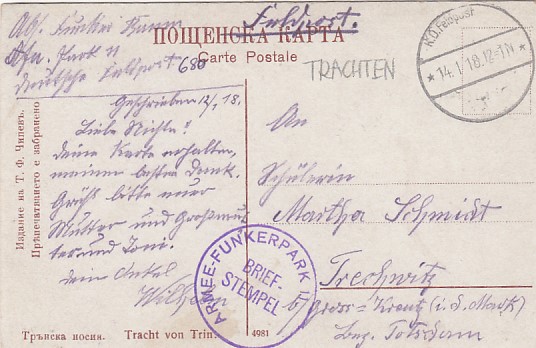 Abs. Funker
Afu. Park 11
Deutsche Feldpost 680
Feldpost.
ПОЩЕНСКА КАРТА
Carte Postale
TRACHTEN
K.D.Feldpost
* 14.1.18.12-1N *
Geschrieben 12/1.18.
Liebe Nichte!
Deine Karte erhalten,
meinen besten Dank.
Grüße bitte
Mutter und Großmut
ter und Toni.
Dein Onkel
Wilhelm
An
Schülerin
Martha Schmidt
Trechwitz
b/ Gross-Kreutz (i. d. Mark)
Bez. Potsdam
ARMEE-FUNKERPARK 11
BRIEF-
STEMPEL
Издание на Т. Ф. Чипевъ.
Прѣпечатванието е забранено
Трънска носия.
Tracht von Trin.
4981